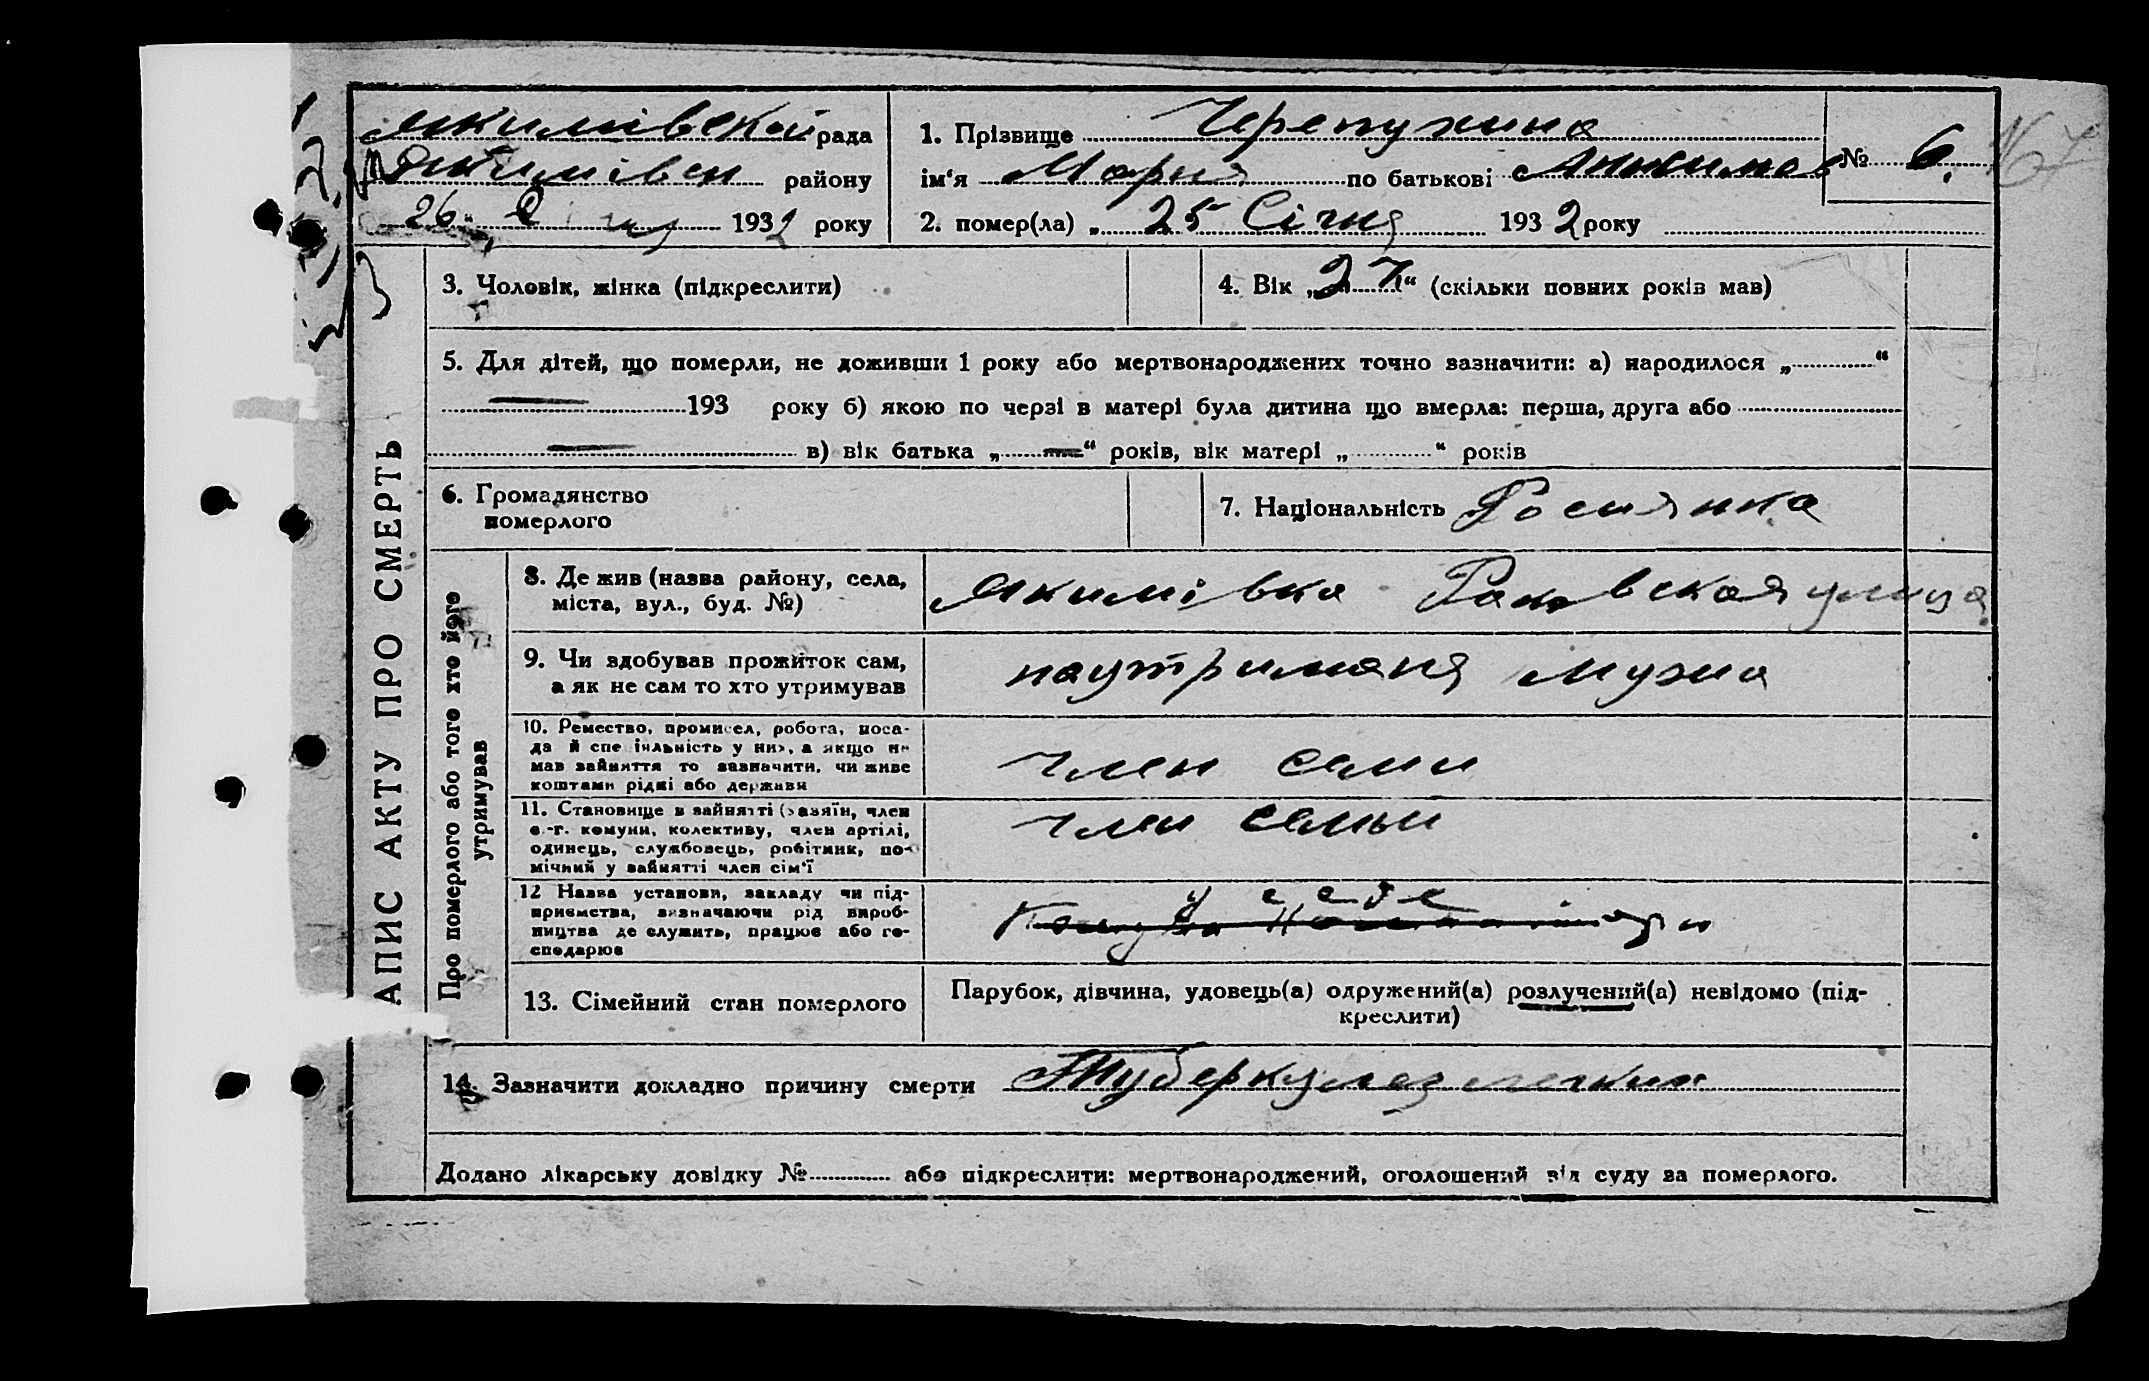 Якимівской рада
Якимівск району
26 1932 року
1. Прізвище Черепухина
ім'я Мария по батькові Якимов
№ 6.
№7
2. помер(ла) „ 25 Січня 1932 року
АПИС АКТУ ПРО СМЕРТЬ
3. Чоловік, жінка (підкреслити)
4. Вік „27“ (скільки повних років мав)
5. Для дітей, що померли, не доживши 1 року або мертвонароджених точно зазначити: а) народилося „ “
— 193 року б) якою по черзі в матері була дитина що вмерла: перша, друга або
— в) вік батька „—“ років, вік матері „ “ років
6. Громадянство
померлого
7. Національність Росиянка
Про померлого або того хто його
утримував
8. Де жив (назва району, села,
міста, вул., буд. №)
Якимівка Раковская улица
9. Чи здобував прожиток сам,
а як не сам то хто утримував
наутриманя мужа
10. Ремество, промисел, робота, поса-
да й спеціяльність у них, а якщо не
мав зайняття то зазначити, чи живе
коштами рідні або держави
член семи
11. Становище в зайнятті (хазяїн, член
с.-г. комуни, колективу, член артілі,
одинець, службовець, робітник, по-
мічний у зайнятті член сім'ї
член семьи
12 Назва установи, закладу чи під-
приємства, визначаючи рід вироб-
ництва де служить, працює або го-
сподарює
у себе
13. Сімейний стан померлого
Парубок, дівчина, удовець(а) одружений(а) розлучений(а) невідомо (під-
креслити)
14. Зазначити докладно причину смерти Туберкулез легких
Додано лікарську довідку № або підкреслити: мертвонароджений, оголошений від суду за померлого.